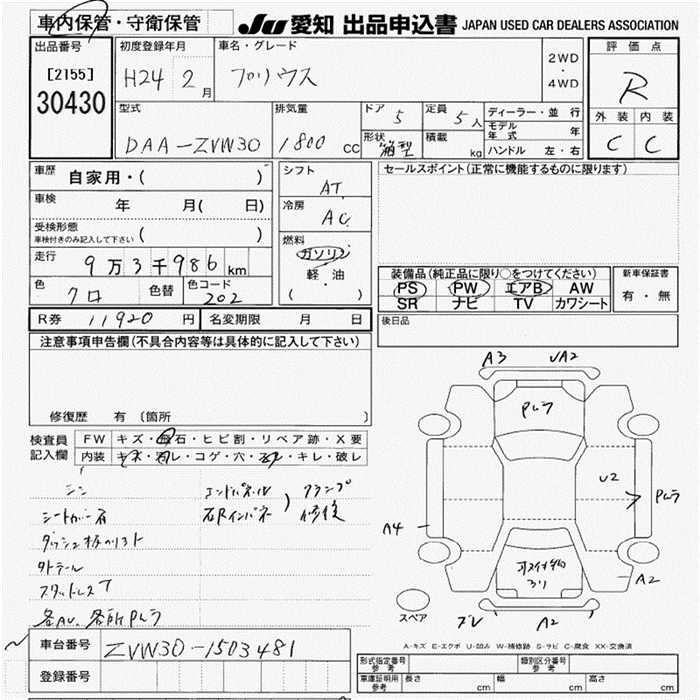 車内保管・守衛保管
JU 愛知 出品申込書 JAPAN USED CAR DEALERS ASSOCIATION
出品番号 初度登録年月 車名・グレード 2WD・4WD 評価点
[2155] H24 2月 プリウス R
30430
型式 排気量 ドア 5 定員 5人 ディーラー・並行 外装 内装
DAA-ZVW30 1800 cc 形状 箱型 積載 kg モデル年式 年 C C
ハンドル 左・右
車歴 自家用・( ) シフト AT セールスポイント(正常に機能するものに限ります)
車検 年 月( 日) 冷房 AC
受検形態 ( )
車検付きのみ記入して下さい
燃料 ガソリン
走行 9万3千986km 軽・油 装備品(純正品に限り○をつけてください) 新車保証書
( ・ )
色 クロ 色替 色コード 202 PS PW エアB AW 有・無
SR ナビ TV カワシート
R券 11920円 名変期限 月 日 後日品
注意事項申告欄(不具合内容等は具体的に記入して下さい)
A3 A2
Pムラ
修復歴 有 〔箇所 〕
検査員 FW キズ・飛石・ヒビ割・リペア跡・X要
記入欄 内装 キズ・コゲ・穴・キレ・破レ
U2 Pムラ
エンドパネル クランプ
シートカバー右 右Rインパネ 修復
A4
ダッシュ板
スタットレス
A2
各AU、各所Pムラ
スペア
A2
車台番号 ZVW30-1503481
A-キズ E-エクボ U-凹み W-補修跡 S-サビ C-腐食 XX-交換済
登録番号 形式指定番号 参考 類別区分番号 参考
車庫証明用 参考 長さ cm 幅 cm 高さ cm